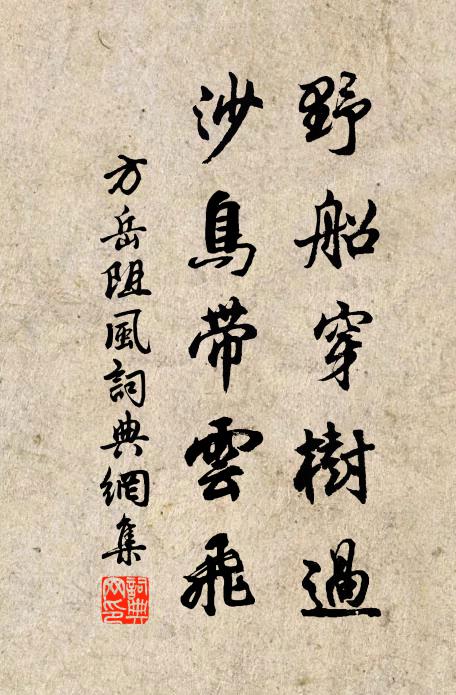 野船穿樹過
沙鳥帶雲飛
方岳阻風詞典網集
詞典网印